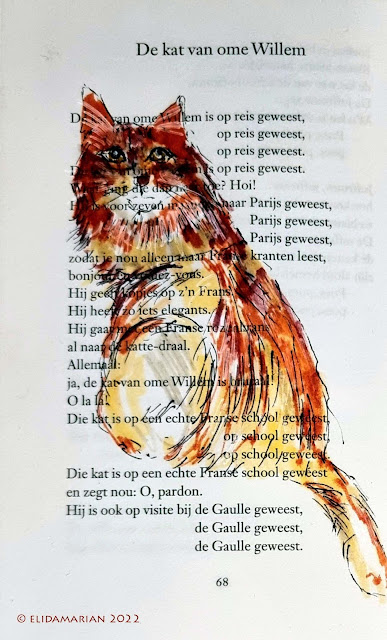 De kat van ome Willem
De kat van ome Willem is op reis geweest,
op reis geweest,
op reis geweest.
De kat van ome Willem is op reis geweest.
Waar ging die dan naar toe? Hoi!
Hij is voor zeven naar Parijs geweest,
Parijs geweest,
Parijs geweest,
zodat je nou alleen maar Franse kranten leest,
bonjour en
Hij geeft kopjes op z'n Frans.
Hij heeft zo iets elegants.
Hij gaat met een Franse
al naar de katte-draal.
Allemaal:
ja, de kat van ome Willem is
O la la!
Die kat is op een echte Franse school geweest,
op school geweest,
op school geweest.
Die kat is op een echte Franse school geweest
en zegt nou: O, pardon.
Hij is ook op visite bij de Gaulle geweest,
de Gaulle geweest,
de Gaulle geweest.
68
© ELIDAMARIAN 2022